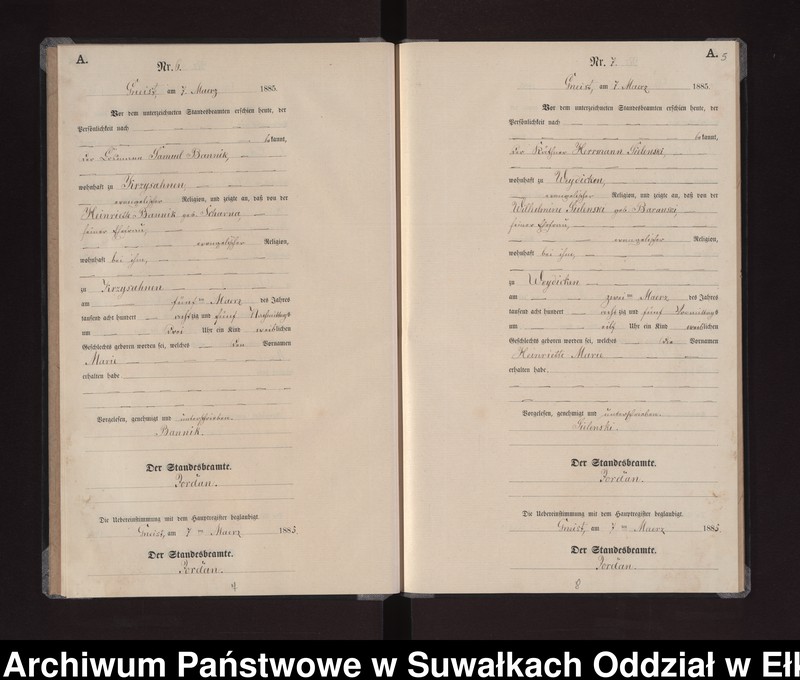 A.
Nr. 6.
Gneist, am 7. Maerz 1885.
Vor dem unterzeichneten Standesbeamten erschien heute, der
Persönlichkeit nach
bekannt,
der Losmann Samuel Bannik,
wohnhaft zu Krzysahnen,
evangelischer Religion, und zeigte an, daß von der
Heinriette Bannik geb. Scharna,
seiner Ehefrau,
evangelischer Religion,
wohnhaft bei ihm,
zu Krzysahnen
am fünften Maerz des Jahres
tausend acht hundert achtzig und fünf Nachmittags
um drei Uhr ein Kind weiblichen
Geschlechts geboren worden sei, welches den Vornamen
Marie
erhalten habe
Vorgelesen, genehmigt und unterschrieben.
Bannik.
Der Standesbeamte.
Jordan.
Die Uebereinstimmung mit dem Hauptregister beglaubigt.
Gneist, am 7ten Maerz 1885.
Der Standesbeamte.
Jordan.
A.
5
Nr. 7.
Gneist, am 7. Maerz 1885.
Vor dem unterzeichneten Standesbeamten erschien heute, der
Persönlichkeit nach
bekannt,
der Käthner Herrmann Sielenski,
wohnhaft zu Weydicken,
evangelischer Religion, und zeigte an, daß von der
Wilhelmine Sielenski geb. Baranski,
seiner Ehefrau,
evangelischer Religion,
wohnhaft bei ihm,
zu Weydicken
am zweiten Maerz des Jahres
tausend acht hundert achtzig und fünf Vormittags
um Uhr ein Kind weiblichen
Geschlechts geboren worden sei, welches die Vornamen
Heinriette Marie
erhalten habe,
Vorgelesen, genehmigt und unterschrieben.
Sielenski.
Der Standesbeamte.
Jordan.
Die Uebereinstimmung mit dem Hauptregister beglaubigt.
Gneist, am 7ten Maerz 1885.
Der Standesbeamte.
Jordan.
8
Archiwum Państwowe w Suwałkach Oddział w Ełk